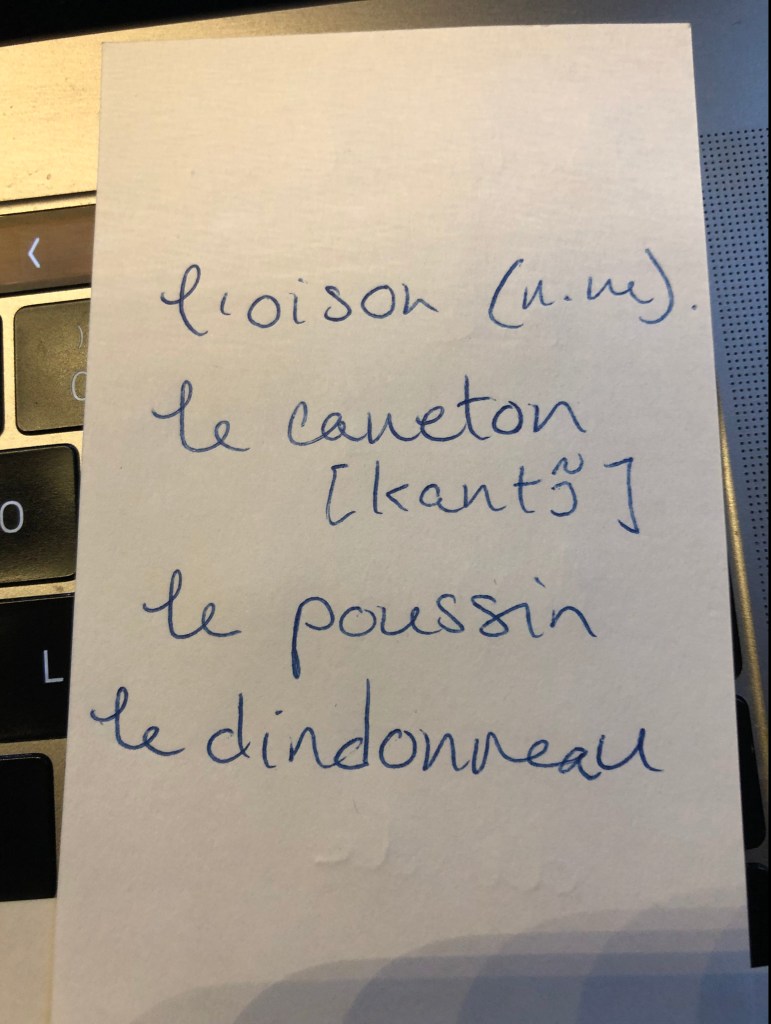 l'oison (n.m).
le caneton
[kantɔ̃]
le poussin
le dindonneau
<
)
0
O
L